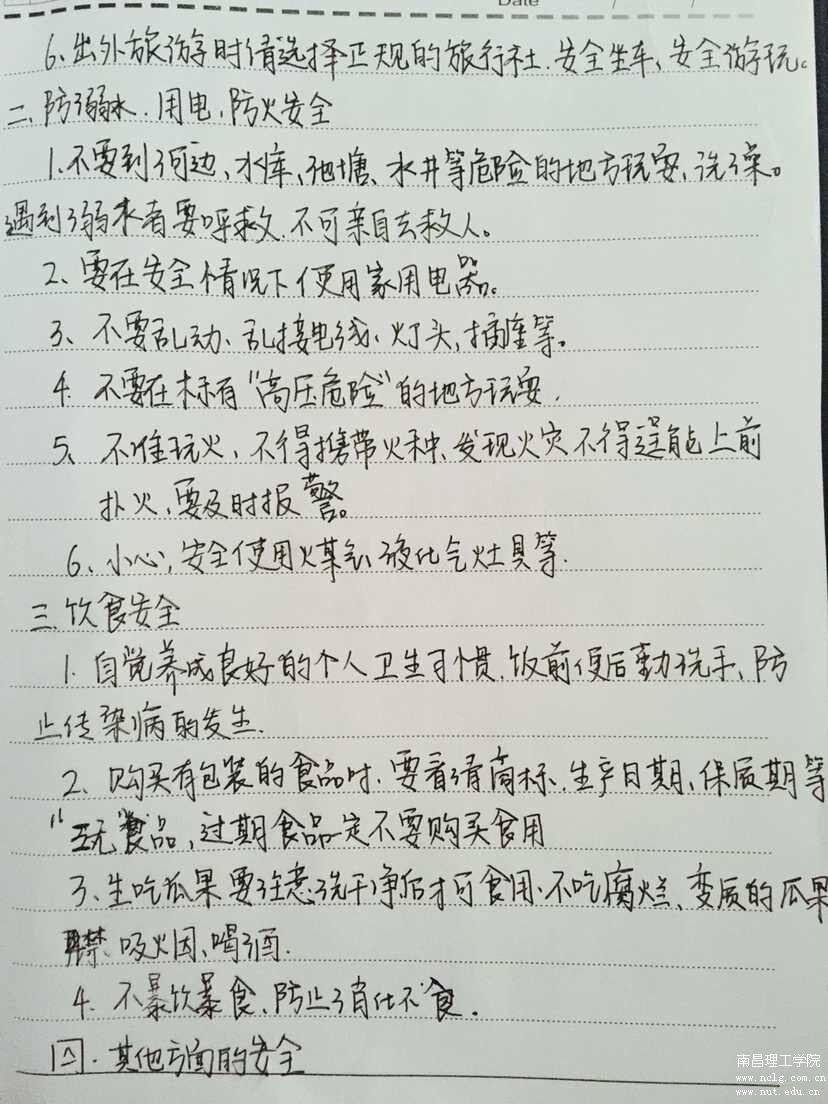 Date / /
6、出外旅游时请选择正规的旅行社.安全坐车、安全游玩。
二、防溺水.用电.防火安全
1.不要到河边、水库、池塘、水井等危险的地方玩耍、洗澡。
遇到溺水者要呼救.不可亲自去救人。
2、要在安全情况下使用家用电器。
3、不要乱动、乱接电线、灯头,插座等。
4.不要在标有“高压危险”的地方玩耍.
5、不准玩火、不得携带火种、发现火灾不得逞能上前
扑火、要及时报警。
6、小心,安全使用煤气、液化气灶具等.
三.饮食安全
1.自觉养成良好的个人卫生习惯.饭前便后勤洗手、防
止传染病的发生.
2、购买有包装的食品时.要看清商标.生产日期、保质期等
“三无”食品,过期食品一定不要购买食用
3、生吃瓜果要注意洗干净后才可食用.不吃腐烂、变质的瓜果
禁吸烟、喝酒.
4.不暴饮暴食、防止消化不食.
四.其他方面的安全
南昌理工学院
www.nclg.com.cn
www.nut.edu.cn